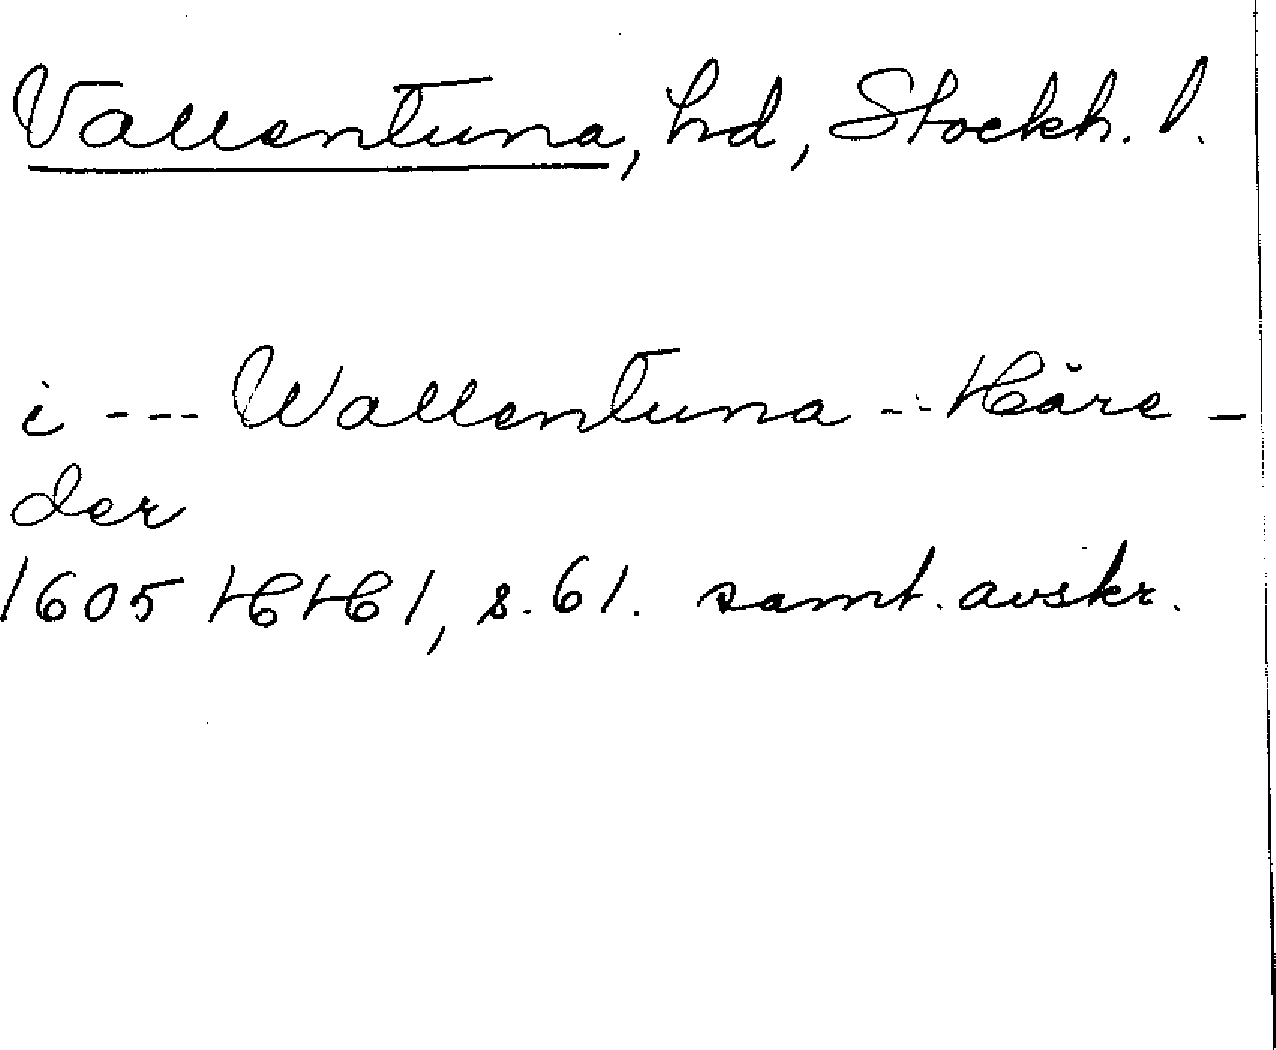 Vallentuna, hd, Stockh. l.
i --- Wallentuna -- Häre-
der
1605 HH 1, s. 61. samt. avskr.